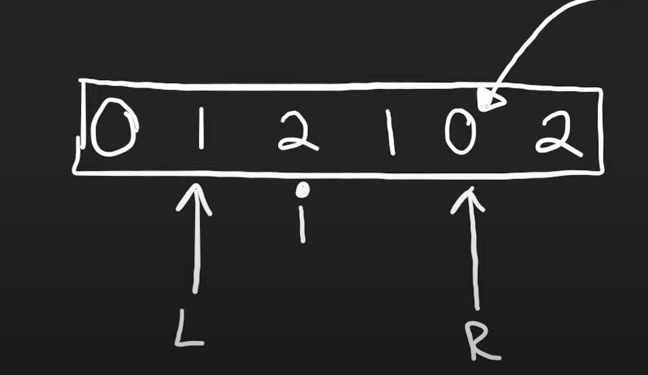 0 1 2 1 0 2
i
L R